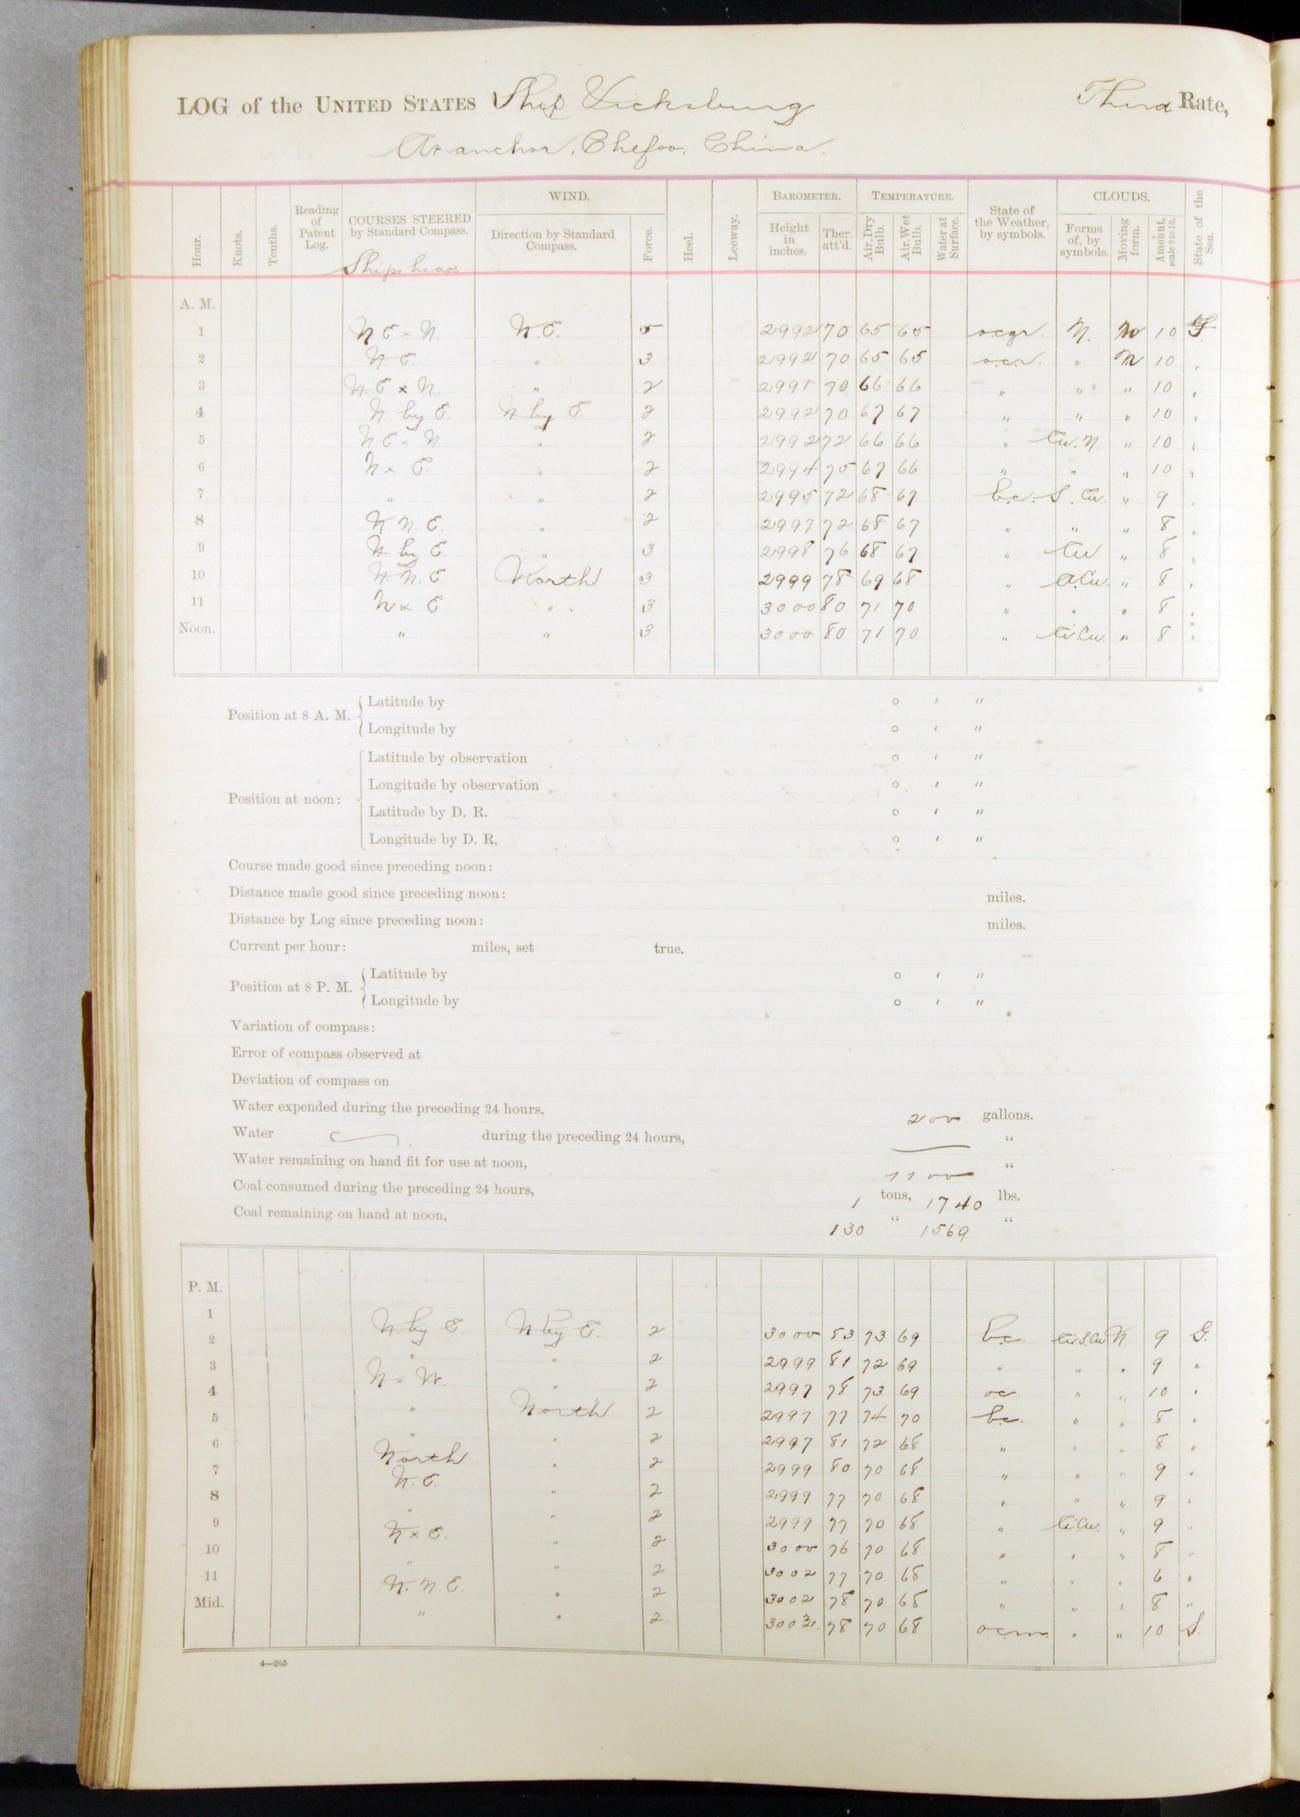 LOG of the UNITED STATES Ship Vicksburg Third Rate,
At anchor, Chefoo, China.
Hour. Knots. Tenths. Reading of Patent Log. COURSES STEERED by Standard Compass. WIND. Direction by Standard Compass. Force. Heel. Leeway. BAROMETER. Height in inches. Ther. att'd. TEMPERATURE. Air, Dry Bulb. Air, Wet Bulb. Water at Surface. State of the Weather, by symbols. CLOUDS. Forms of, by symbols. Moving form. Amount, scale 0 to 10. State of the Sea.
Ships head
A. M.
1 N E x N. N.E. 5 2992 70 65 65 o.c.g.r. N. N 10
2 N E. " 3 2992 70 65 65 o.c.r. " N 10 "
3 N. E x N. " 2 2991 70 66 66 " " " 10 "
4 N by E. N by E 2 2992 70 67 67 " " " 10 "
5 N E x N " 2 2992 72 66 66 " Cu. N. " 10 "
6 N x E. " 2 2994 75 67 66 " " " 10 "
7 " " 2 2995 72 68 67 b.c. S. Cu. " 9 "
8 N N. E. " 2 2997 72 68 67 " " " 8 "
9 N by E. " 3 2998 76 68 67 " Cu " 8 "
10 N. N. E North 3 2999 78 69 68 " A.Cu. " 8 "
11 N x E " 3 3000 80 71 70 " " " 8 "
Noon. " " 3 3000 80 71 70 " Ci.Cu. " 8 "
Position at 8 A. M. Latitude by ° ' "
Longitude by ° ' "
Latitude by observation ° ' "
Position at noon: Longitude by observation ° ' "
Latitude by D. R. ° ' "
Longitude by D. R. ° ' "
Course made good since preceding noon:
Distance made good since preceding noon: miles.
Distance by Log since preceding noon: miles.
Current per hour: miles, set true.
Position at 8 P. M. Latitude by ° ' "
Longitude by ° ' "
Variation of compass:
Error of compass observed at
Deviation of compass on
Water expended during the preceding 24 hours, 200 gallons.
Water during the preceding 24 hours, "
Water remaining on hand fit for use at noon, 1100 "
Coal consumed during the preceding 24 hours, 1 tons, 1740 lbs.
Coal remaining on hand at noon, 130 " 1569 "
P. M.
1 N by E. N by E. 2 3000 83 73 69 b.c. Ci.S.Cu N. 9 G.
2 " " 2 2999 81 72 69 " " " 9 "
3 N x W. " 2 2997 78 73 69 oc " " 10 "
4 " North 2 2997 77 74 70 b.c. " " 8 "
5 " " 2 2997 81 72 68 " " " 8 "
6 North " 2 2999 80 70 68 " " " 9 "
7 N. E. " 2 2999 77 70 68 " " " 9 "
8 " " 2 2999 77 70 68 " Ci.Cu. " 9 "
9 N x E. " 2 3000 76 70 68 " " " 8 "
10 " " 2 3002 77 70 68 " " " 6 "
11 N. N. E. " 2 3002 78 70 68 " " " 8 "
Mid. " " 2 78 70 68 o.c.m. " " 10 S.
4—265